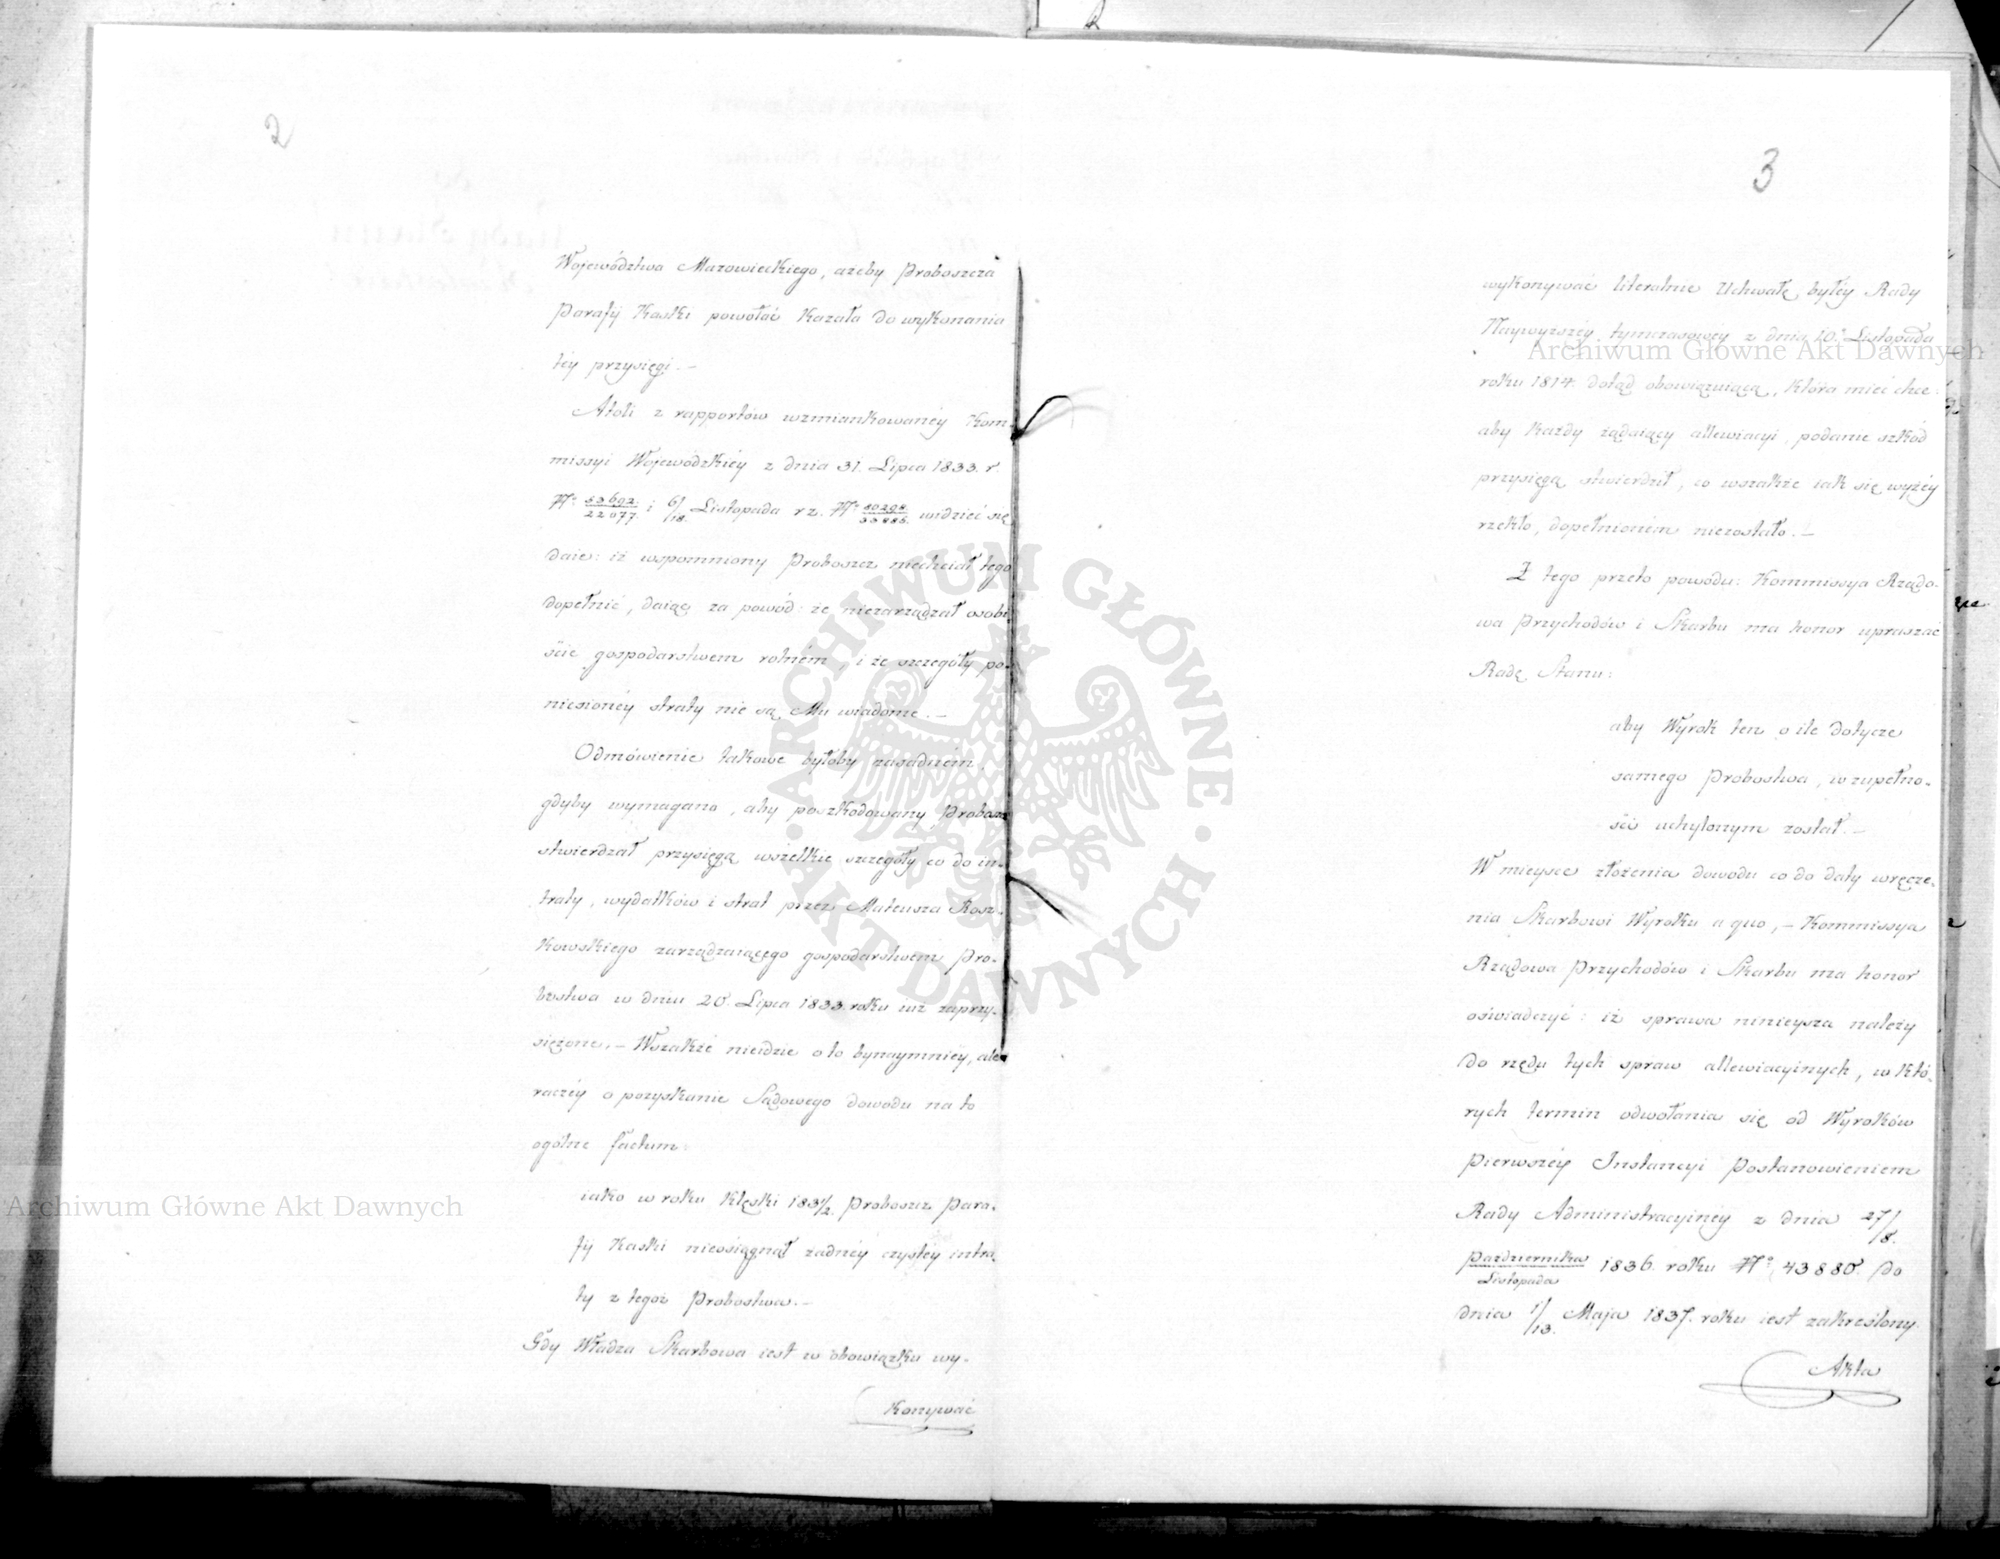 2
Województwa Mazowieckiego, ażeby Proboszcza
Parafij Kaski powołać kazała do wykonania
téy przysięgi. —
Atoli z rapportów wzmiankowanéy Kom-
missyi Wojewódzkiéy z dnia 31. Lipca 1833. r.
Nº 53692/22077. i 6/18. Listopada r z. Nº 80298/33886. widzieć się
daie: iż wspomniony Proboszcz niechciał tego
dopełnić, daiąc za powód: że niezarządzał osobi-
ście gospodarstwem rolném, i że szczegóły po-
niesionéy straty nie są Mu wiadome. —
Odmówienie takowe byłoby zasadném,
gdyby wymagano, aby poszkodowany Proboszcz
stwierdzał przysięgą wszelkie szczegóły co do in-
traty, wydatków i strat przez Mateusza Rosz-
kowskiego zarządzaiącego gospodarstwem Pro-
bostwa w dniu 20. Lipca 1833 roku iuż zaprzy-
siężone. — Wszakże nieidzie o to bynaymniéy, ale
raczéy o pozyskanie Sądowego dowodu na to
ogólne factum:
iako w roku klęski 1831/2. Proboszcz Para-
fij Kaski nieosiągnął żadnéy czystéy intra-
ty z tegoż Probostwa. —
Gdy Władza Skarbowa iest w obowiązku wy-
konywać
3
wykonywać literalnie Uchwałę byłéy Rady
Naywyższéy tymczasowéy z dnia 10. Listopada
roku 1814. dotąd obowiązuiącą, która mieć chce:
aby każdy żądaiący allewiacyi, podanie szkód
przysięgą stwierdził, co wszakże iak się wyżéy
rzekło, dopełnioném niezostało. —
Z tego przeto powodu: Kommissya Rządo-
wa Przychodów i Skarbu ma honor upraszać
Radę Stanu:
aby Wyrok ten o ile dotycze
samego Probostwa, w zupełno-
ści uchylonym został. —
W mieysce złożenia dowodu co do daty wręcze-
nia Skarbowi Wyroku a quo, — Kommissya
Rządowa Przychodów i Skarbu ma honor
oświadczyć: iż sprawa ninieysza należy
do rzędu tych spraw allewiacyinych, w któ-
rych termin odwołania się od Wyroków
pierwszéy Instancyi Postanowieniem
Rady Administracyinéy z dnia 27/8.
Października/Listopada 1836. roku Nº 43880. do
dnia 1/13. Maja 1837. roku iest zakreślony.
Akta
Archiwum Główne Akt Dawnych
Archiwum Główne Akt Dawnych
ARCHIWUM GŁÓWNE · AKT DAWNYCH ·